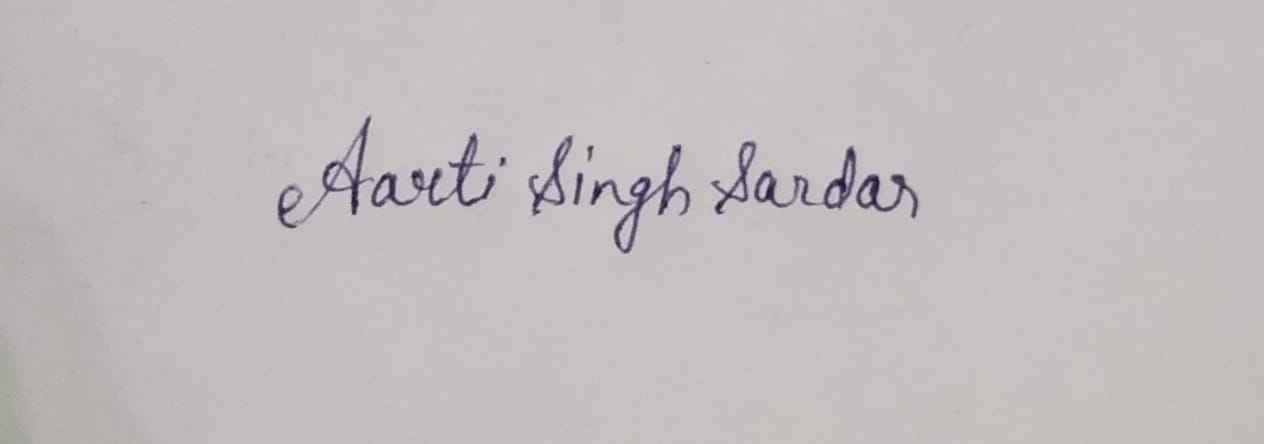 Aarti Singh Sardar